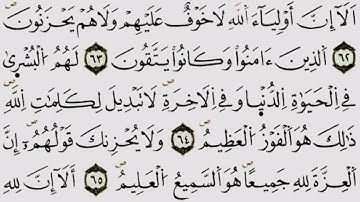 أَلَآ إِنَّ أَوْلِيَآءَ ٱللَّهِ لَا خَوْفٌ عَلَيْهِمْ وَلَا هُمْ يَحْزَنُونَ
٦٢ ٱلَّذِينَ ءَامَنُوا۟ وَكَانُوا۟ يَتَّقُونَ ٦٣ لَهُمُ ٱلْبُشْرَىٰ
فِى ٱلْحَيَوٰةِ ٱلدُّنْيَا وَفِى ٱلْءَاخِرَةِ لَا تَبْدِيلَ لِكَلِمَٰتِ ٱللَّهِ
ذَٰلِكَ هُوَ ٱلْفَوْزُ ٱلْعَظِيمُ ٦٤ وَلَا يَحْزُنكَ قَوْلُهُمْ إِنَّ
ٱلْعِزَّةَ لِلَّهِ جَمِيعًا هُوَ ٱلسَّمِيعُ ٱلْعَلِيمُ ٦٥ أَلَآ إِنَّ لِلَّهِ